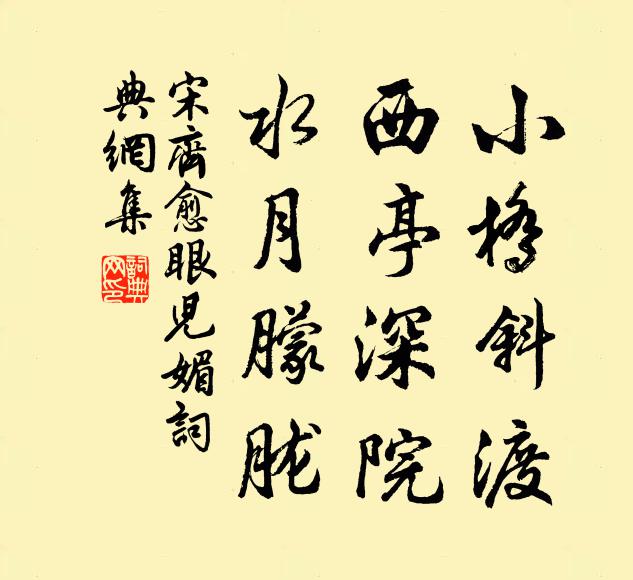 小橋斜渡
西亭深院
水月朦朧
宋齊愈眼兒媚詞
典網集
詞典網印